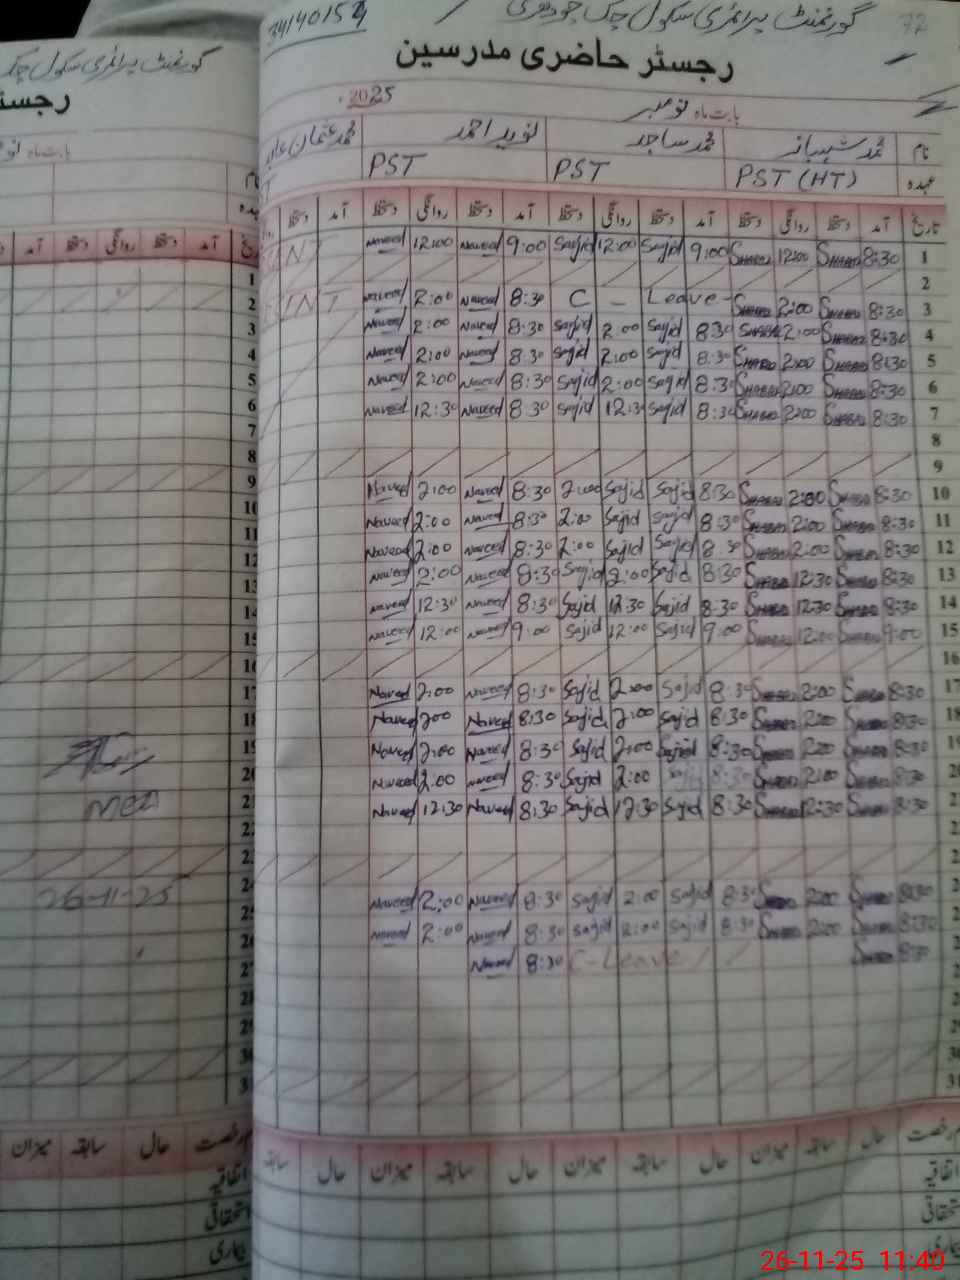 34140154
گورنمنٹ پرائمری سکول چک چوہدری
72
رجسٹر حاضری مدرسین
بابت ماہ نومبر 2025
نام محمد شہباز محمد ساجد نوید احمد محمد عثمان
عہدہ PST (HT) PST PST
تاریخ آمد دستخط روانگی دستخط آمد دستخط روانگی دستخط آمد دستخط روانگی دستخط آمد دستخط
1 8:30 Shabaz 12:00 Shabaz 9:00 Sajid 12:00 Sajid 9:00 Naveed 12:00 Naveed
2
3 8:30 Shabaz 2:00 Shabaz Leave - C 8:30 Naveed 2:00 Naveed
4 8:30 Shabaz 2:00 Shabaz 8:30 Sajid 2:00 Sajid 8:30 Naveed 2:00 Naveed
5 8:30 Shabaz 2:00 Shabaz 8:30 Sajid 2:00 Sajid 8:30 Naveed 2:00 Naveed
6 8:30 Shabaz 2:00 Shabaz 8:30 Sajid 2:00 Sajid 8:30 Naveed 2:00 Naveed
7 8:30 Shabaz 2:00 Shabaz 8:30 Sajid 12:30 Sajid 8:30 Naveed 12:30 Naveed
8
9
10 8:30 Shabaz 2:00 Shabaz 8:30 Sajid Sajid 2:00 8:30 Naveed 2:00 Naveed
11 8:30 Shabaz 2:00 Shabaz 8:30 Sajid Sajid 2:00 8:30 Naveed 2:00 Naveed
12 8:30 Shabaz 2:00 Shabaz 8:30 Sajid Sajid 2:00 8:30 Naveed 2:00 Naveed
13 8:30 Shabaz 12:30 Shabaz 8:30 Sajid 2:00 Sajid 8:30 Naveed 2:00 Naveed
14 8:30 Shabaz 12:30 Shabaz 8:30 Sajid 12:30 Sajid 8:30 Naveed 12:30 Naveed
15 9:00 Shabaz 12:00 Shabaz 9:00 Sajid 12:00 Sajid 9:00 Naveed 12:00 Naveed
16
17 8:30 Shabaz 2:00 Shabaz 8:30 Sajid 2:00 Sajid 8:30 Naveed 2:00 Naveed
8:30 Shabaz 2:00 Shabaz 8:30 Sajid 2:00 Sajid 8:30 Naveed 200 Naveed
8:30 Shabaz 2:00 Shabaz 8:30 Sajid 2:00 Sajid 8:30 Naveed 2:00 Naveed
8:30 Shabaz 2:00 Shabaz 8:30 Sajid 2:00 Sajid 8:30 Naveed 2:00 Naveed
8:30 Shabaz 12:30 Shabaz 8:30 Sajid 12:30 Sajid 8:30 Naveed 12:30 Naveed
8:30 Shabaz 2:00 Shabaz 8:30 Sajid 2:00 Sajid 8:30 Naveed 2:00 Naveed
8:30 Shabaz 2:00 Shabaz 8:30 Sajid 2:00 Sajid 8:30 Naveed 2:00 Naveed
8:30 Shabaz C-Leave 8:30 Naveed
30
31
رخصت حال سابقہ میزان حال سابقہ میزان حال سابقہ میزان حال سابقہ
اتفاقیہ
استحقاقی
بیماری
گورنمنٹ پرائمری سکول چک
بابت ماہ
آمد دستخط روانگی دستخط آمد دستخط
1
2
3
4
5
6
7
8
9
10
11
12
13
14
15
16
17
18
19
20
MEA
26-11-25
رخصت حال سابقہ میزان
اتفاقیہ
استحقاقی
بیماری
26-11-25 11:40